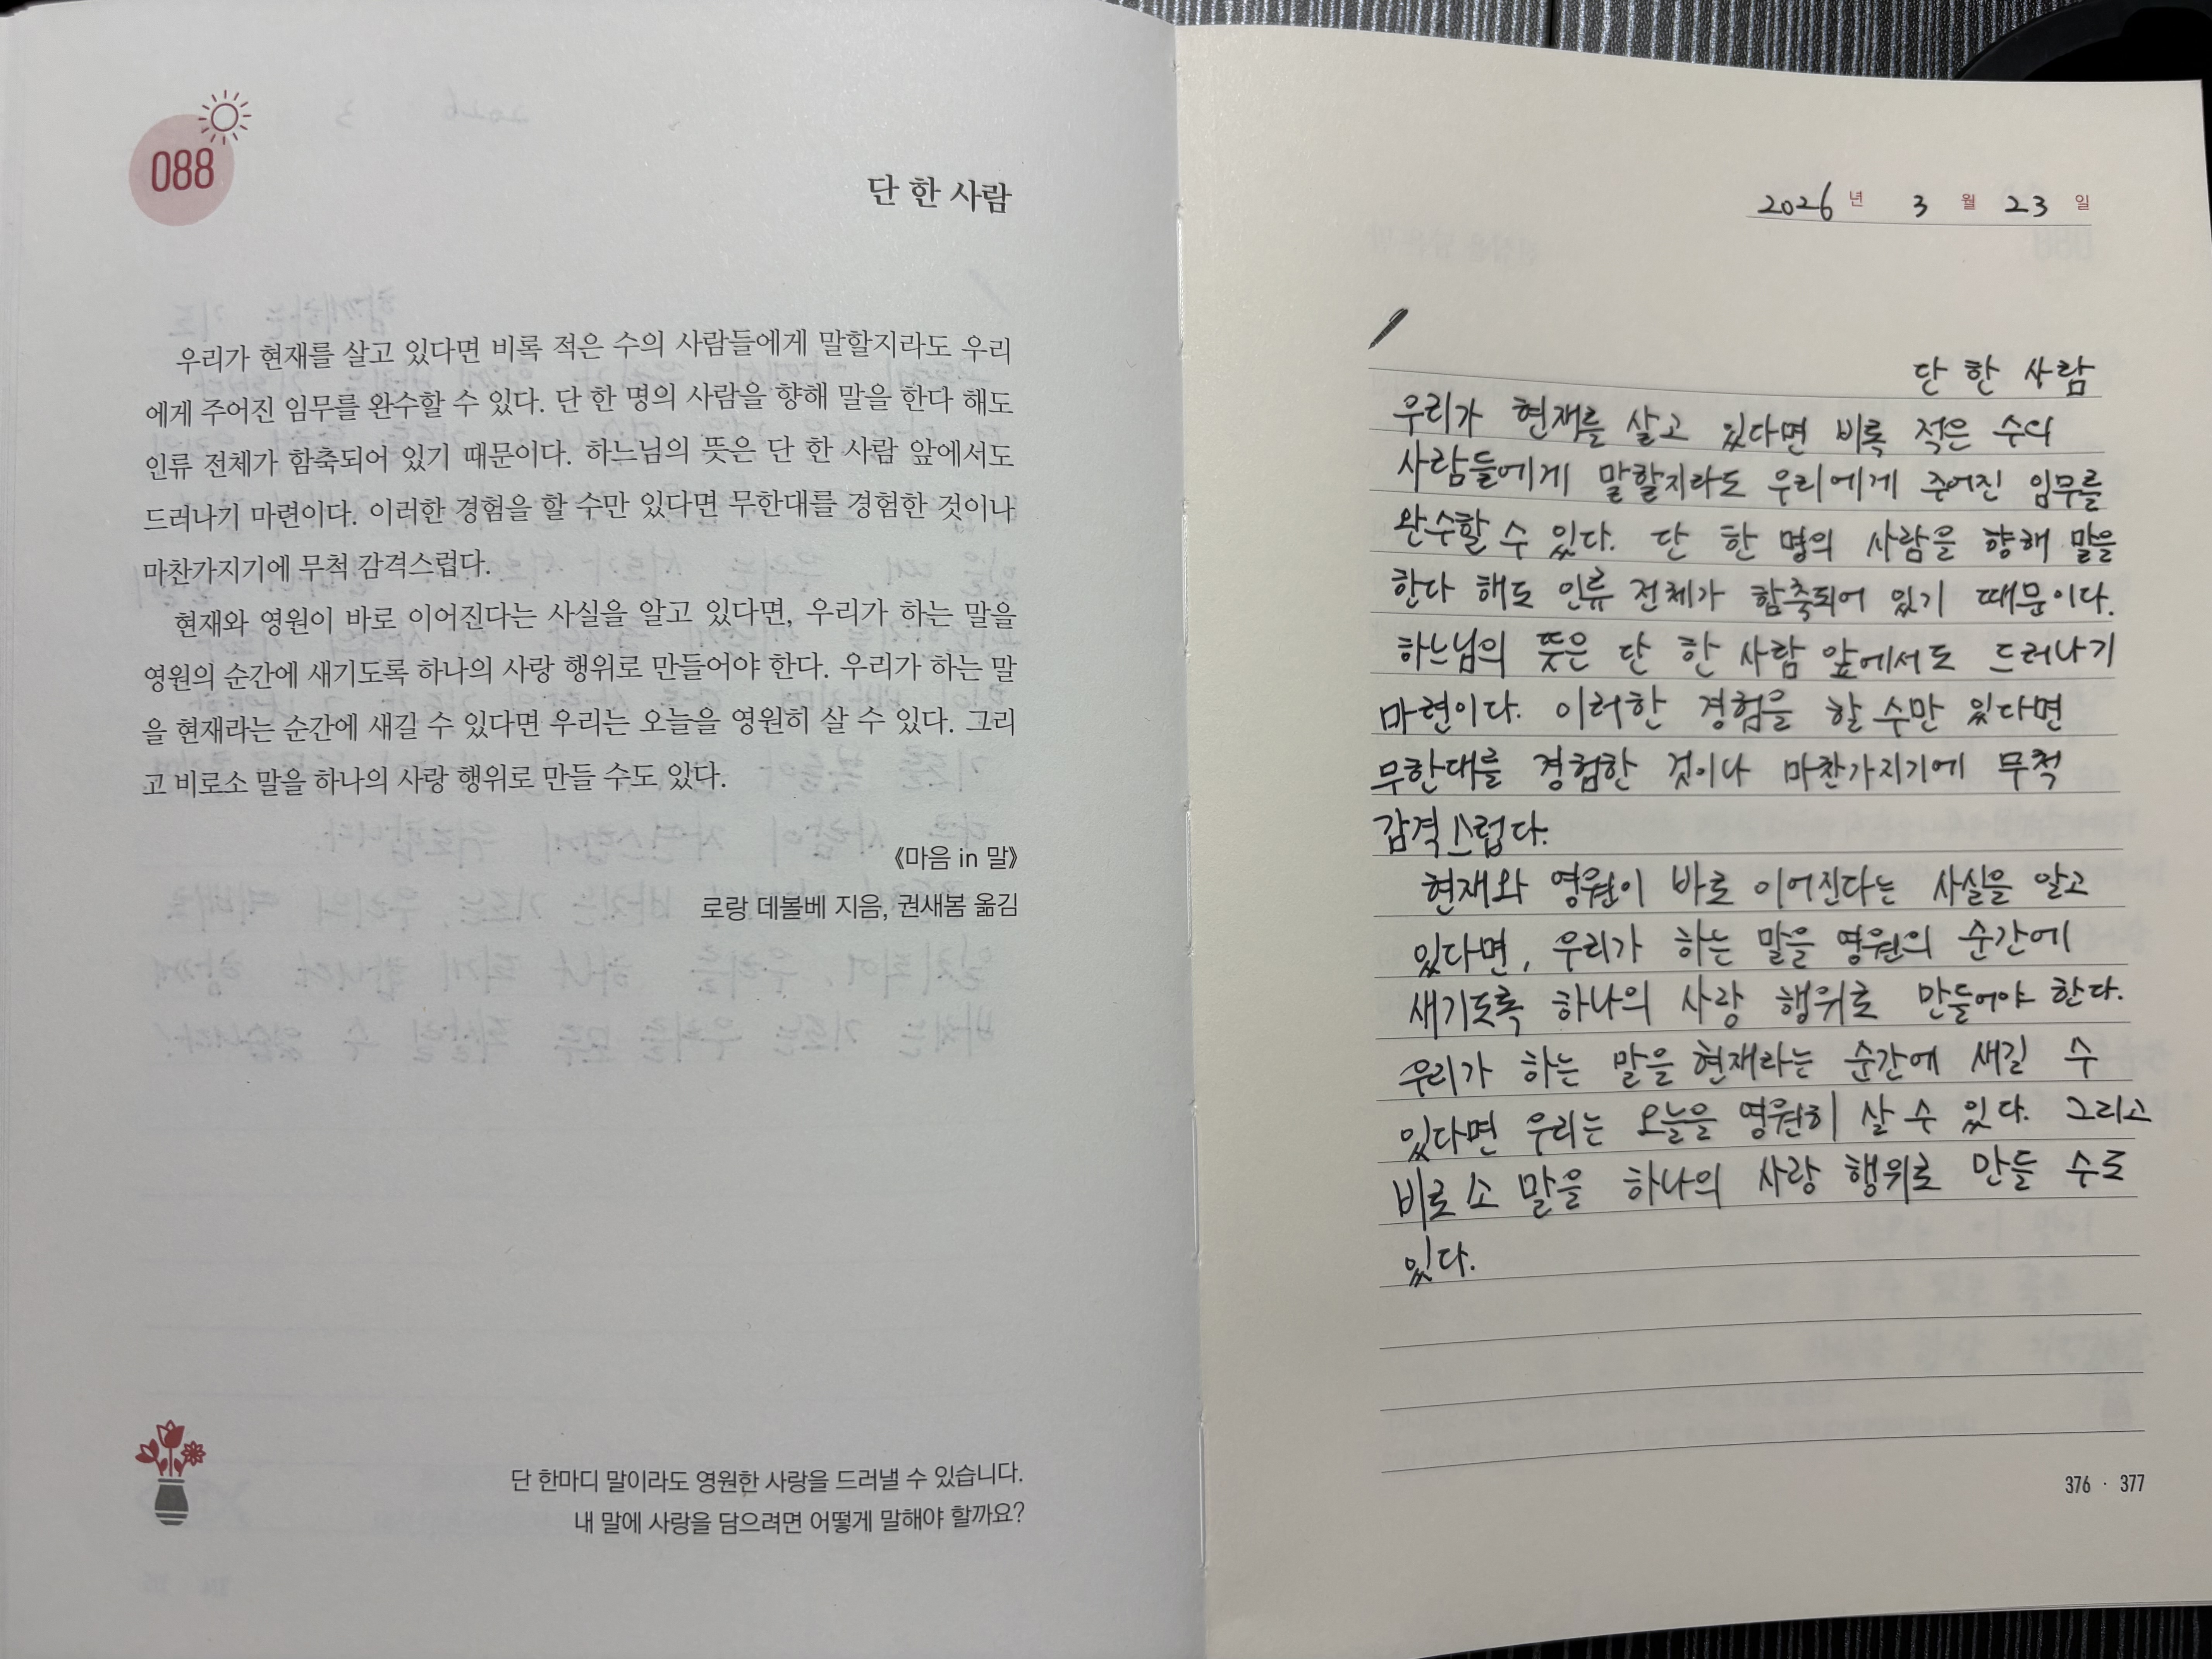 088
단 한 사람
우리가 현재를 살고 있다면 비록 적은 수의 사람들에게 말할지라도 우리
에게 주어진 임무를 완수할 수 있다. 단 한 명의 사람을 향해 말을 한다 해도
인류 전체가 함축되어 있기 때문이다. 하느님의 뜻은 단 한 사람 앞에서도
드러나기 마련이다. 이러한 경험을 할 수만 있다면 무한대를 경험한 것이나
마찬가지기에 무척 감격스럽다.
현재와 영원이 바로 이어진다는 사실을 알고 있다면, 우리가 하는 말을
영원의 순간에 새기도록 하나의 사랑 행위로 만들어야 한다. 우리가 하는 말
을 현재라는 순간에 새길 수 있다면 우리는 오늘을 영원히 살 수 있다. 그리
고 비로소 말을 하나의 사랑 행위로 만들 수도 있다.
《마음 in 말》
로랑 데볼베 지음, 권새봄 옮김
단 한마디 말이라도 영원한 사랑을 드러낼 수 있습니다.
내 말에 사랑을 담으려면 어떻게 말해야 할까요?
2026 년 3 월 23 일
단 한 사람
우리가 현재를 살고 있다면 비록 적은 수의
사람들에게 말할지라도 우리에게 주어진 임무를
완수할 수 있다. 단 한 명의 사람을 향해 말을
한다 해도 인류 전체가 함축되어 있기 때문이다.
하느님의 뜻은 단 한 사람 앞에서도 드러나기
마련이다. 이러한 경험을 할 수만 있다면
무한대를 경험한 것이나 마찬가지기에 무척
감격스럽다.
현재와 영원이 바로 이어진다는 사실을 알고
있다면, 우리가 하는 말을 영원의 순간에
새기도록 하나의 사랑 행위로 만들어야 한다.
우리가 하는 말을 현재라는 순간에 새길 수
있다면 우리는 오늘을 영원히 살 수 있다. 그리고
비로소 말을 하나의 사랑 행위로 만들 수도
있다.
376 · 377